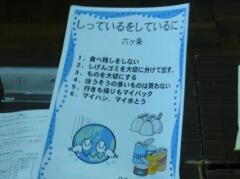 しっているをしているに
六ヶ条
1、食べ残しをしない
2、しげんゴミを大切に分けて出す。
3、ものを大切にする
4、ほうそうの多いものは買わない
5、行きも帰りもマイバック
6、マイハシ、マイ水とう